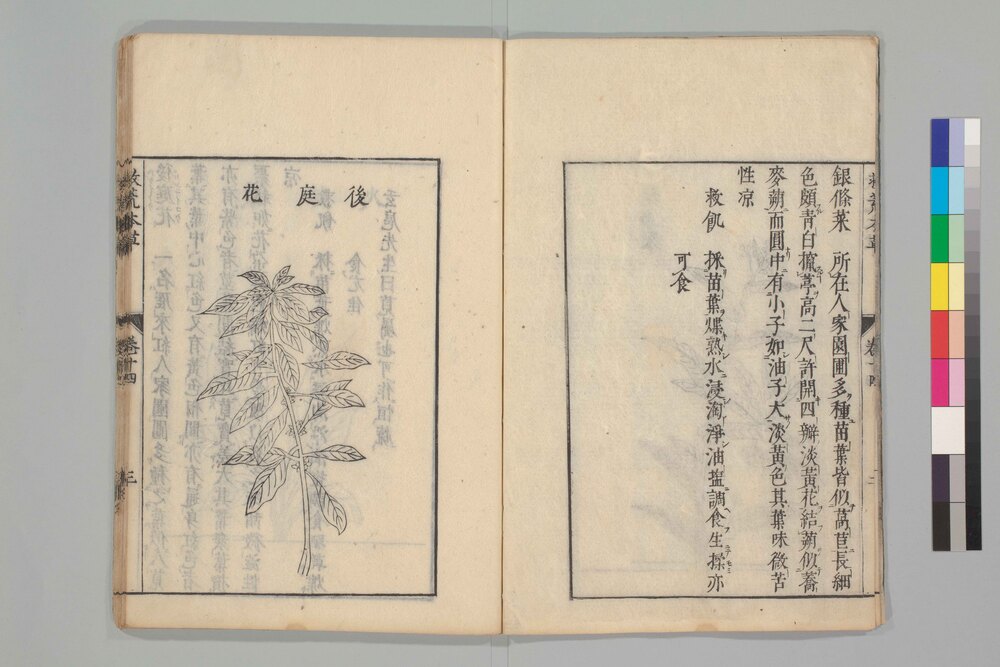 銀條菜 所在人家園圃多種苗葉皆似萵苣長細
色頗青白攛葶高二尺許開四瓣淡黃花結蒴似蕎
麥蒴而圓中有小子如油子大淡黃色其葉味微苦
性凉
救飢 採苗葉煠熟水浸淘淨油塩調食生揉亦
可食
後庭花
救荒本草
卷十四
三